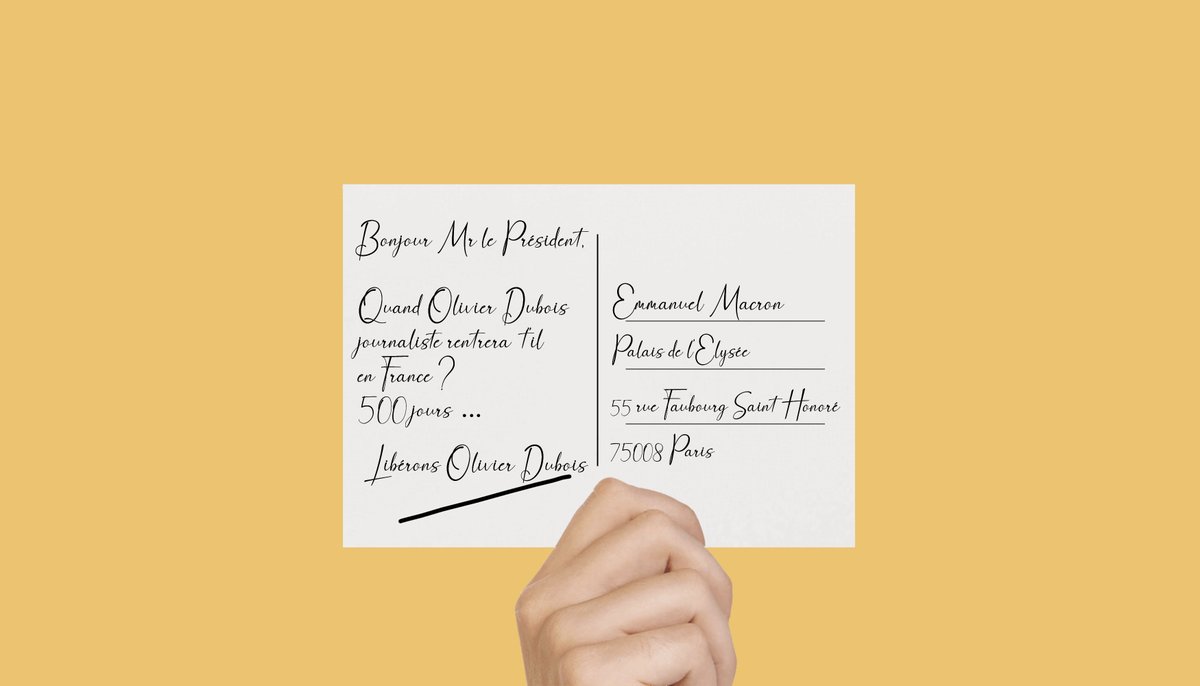 Bonjour Mr le Président,
Quand Olivier Dubois
journaliste rentrera t'il
en France ?
500 jours ...
Libérons Olivier Dubois
Emmanuel Macron
Palais de l'Elysée
55 rue Faubourg Saint Honoré
75008 Paris